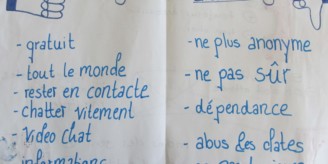 - gratuit
- tout le monde
- rester en contacte
- chatter vitement
- video chat
informations
- ne plus anonyme
- ne pas sûr
- dépendance
- abus des dates